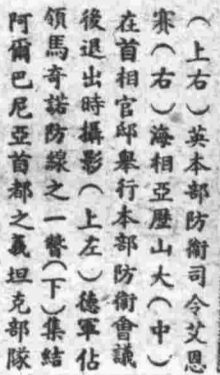 （上右）英本部防衛司令艾恩
賽（右）海相亞歷山大（中）
在首相官邸舉行本部防衛會議
後退出時攝影（上左）德軍佔
領馬奇諾防線之一瞥（下）集結
阿爾巴尼亞首都之義坦克部隊